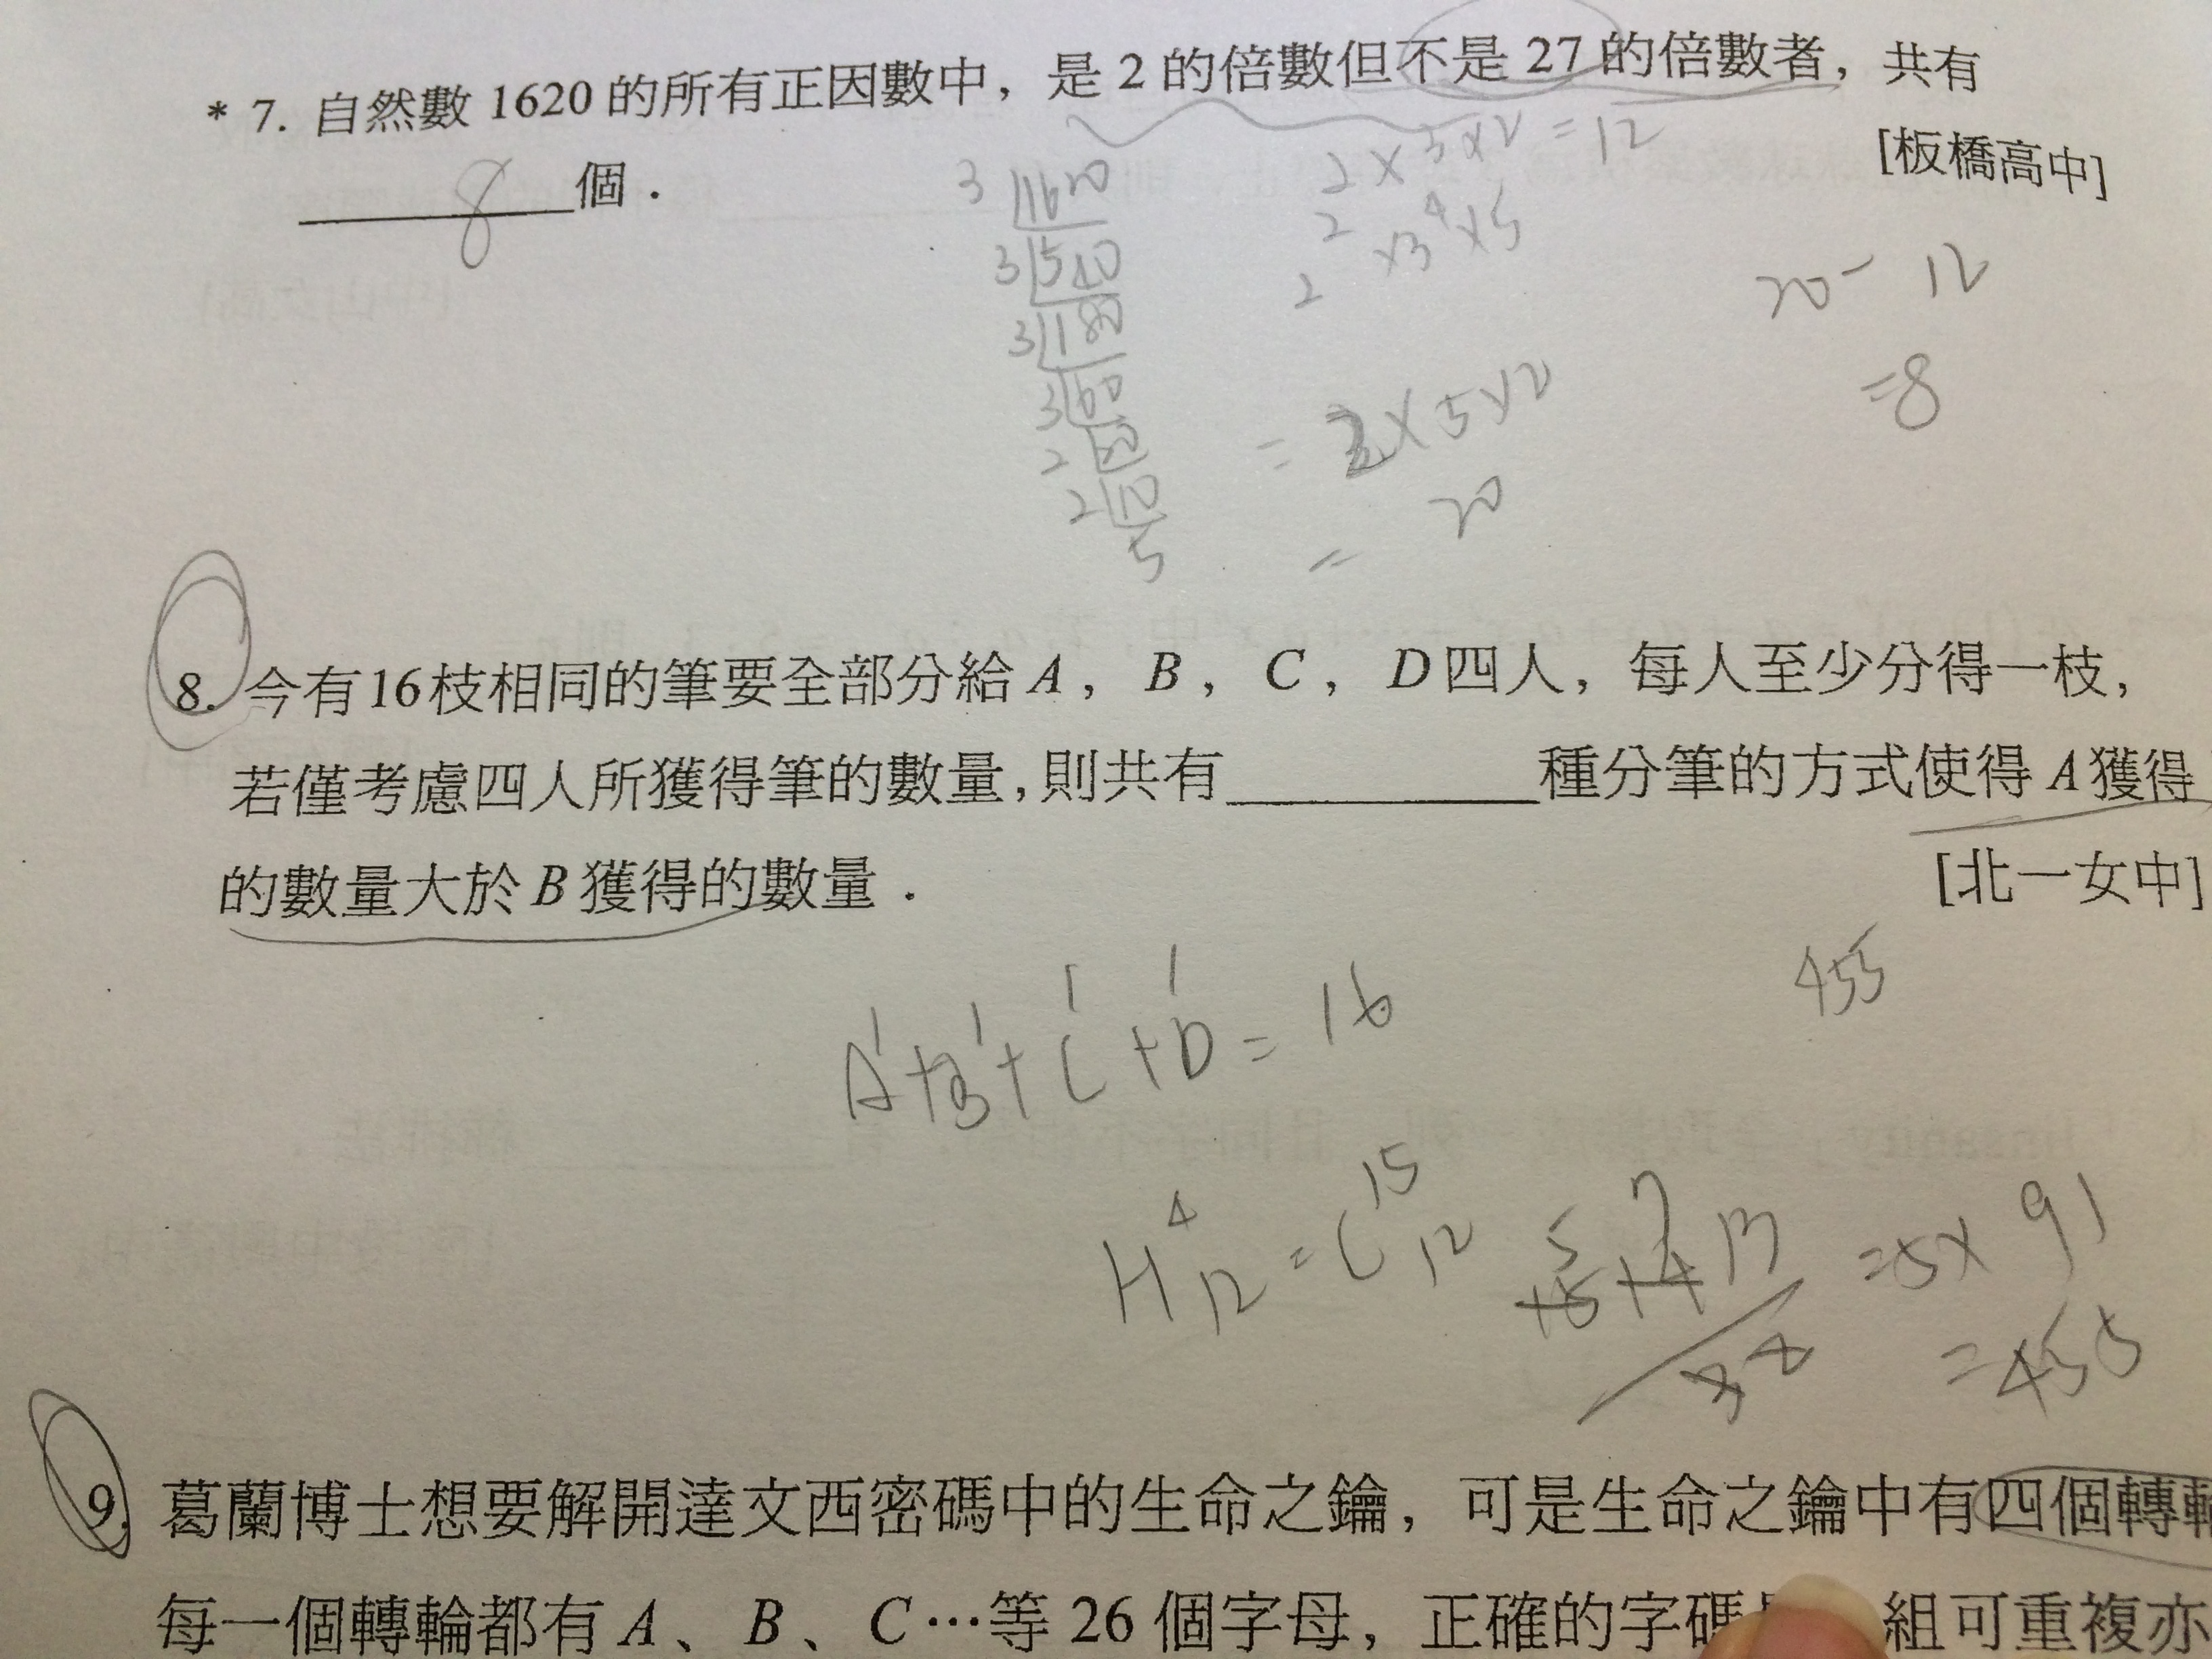 * 7. 自然數 1620 的所有正因數中，是 2 的倍數但不是 27 的倍數者，共有
8 個．
[板橋高中]
2×3×2=12
3 1620
2² ×3⁴×5
3 540
20-12
2
3 180
=8
3 60
= 2×5×2
2 20
2 10
= 20
5
8. 今有16枝相同的筆要全部分給 A，B，C，D四人，每人至少分得一枝，
若僅考慮四人所獲得筆的數量，則共有____________種分筆的方式使得 A獲得
的數量大於 B 獲得的數量．
[北一女中]
455
1 1 1 1
A+B+C+D=16
H⁴₁₂=C¹⁵₁₂
5 7
15 14 13
=5×91
3 2
=455
9. 葛蘭博士想要解開達文西密碼中的生命之鑰，可是生命之鑰中有四個轉
每一個轉輪都有 A、B、C…等 26 個字母，正確的字碼 組可重複亦